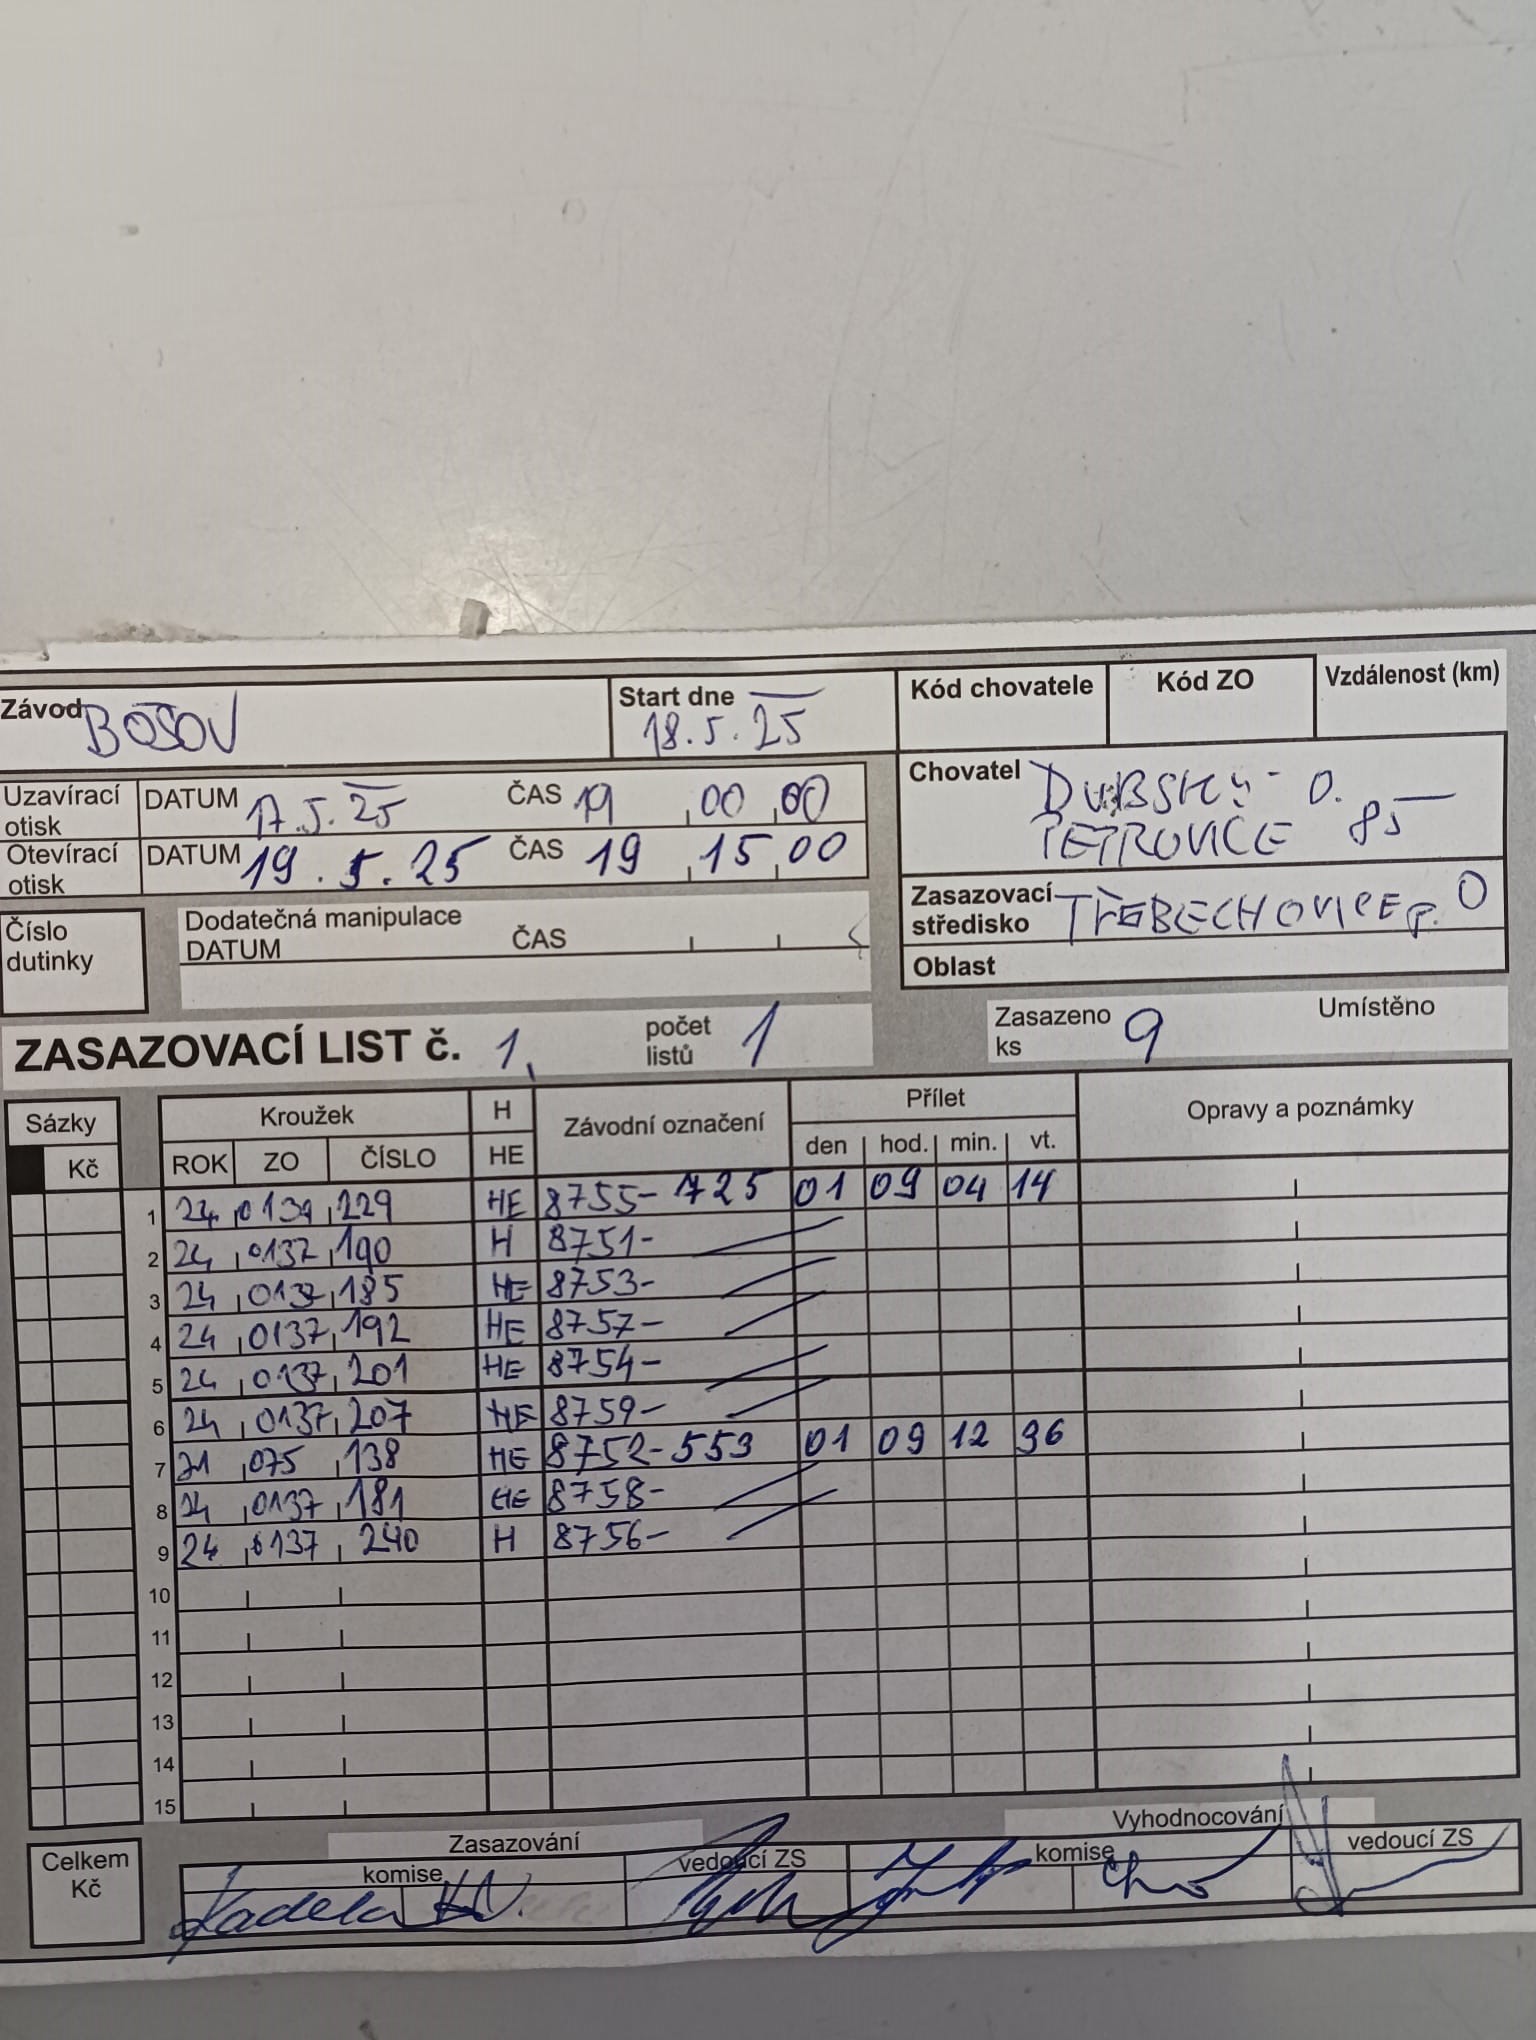 Závod BOŠOV Start dne 18.5.25 Kód chovatele Kód ZO Vzdálenost (km)
Uzavírací otisk DATUM 17.5.25 ČAS 19 00 00
Otevírací otisk DATUM 19.5.25 ČAS 19 15 00
Chovatel DUBSKÝ O.
PETROVIČE 85
Zasazovací středisko TŘEBECHOVICE p. O
Oblast
Číslo dutinky
Dodatečná manipulace
DATUM ČAS
ZASAZOVACÍ LIST č. 1, počet listů 1 Zasazeno ks 9 Umístěno
Sázky Kroužek H Závodní označení Přílet Opravy a poznámky
Kč ROK ZO ČÍSLO HE den hod. min. vt.
1 24 0139 229 HE 8755- 725 01 09 04 14
2 24 0137 190 H 8751-
3 24 0137 185 HE 8753-
4 24 0137 192 HE 8757-
5 24 0137 201 HE 8754-
6 24 0137 207 HE 8759-
7 21 075 138 HE 8752-553 01 09 12 36
8 24 0137 181 HE 8758-
9 24 0137 240 H 8756-
10
11
12
13
14
15
Celkem Kč
Zasazování Vyhodnocování
komise vedoucí ZS komise vedoucí ZS
Kadela